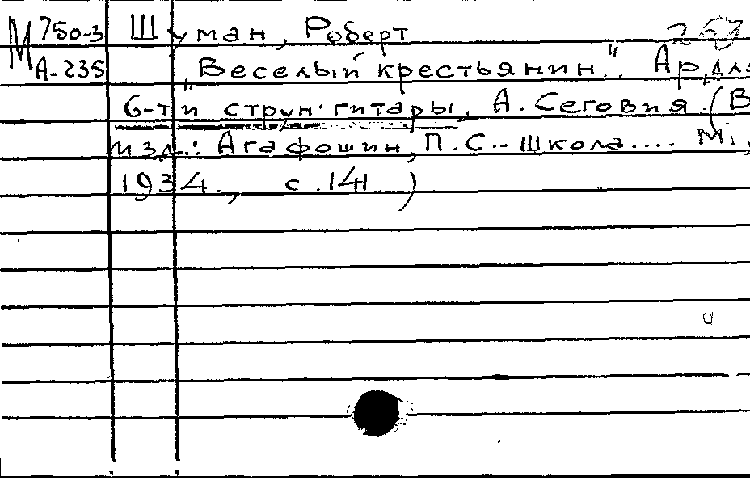 М 750-3 Шуман, Роберт
А-235 „Веселый крестьянин". Ар. для
6-ти струн. гитары, А. Сеговия. (В
изд.: Агафошин, П.С.-Школа.... М.,
1934., с. 141)